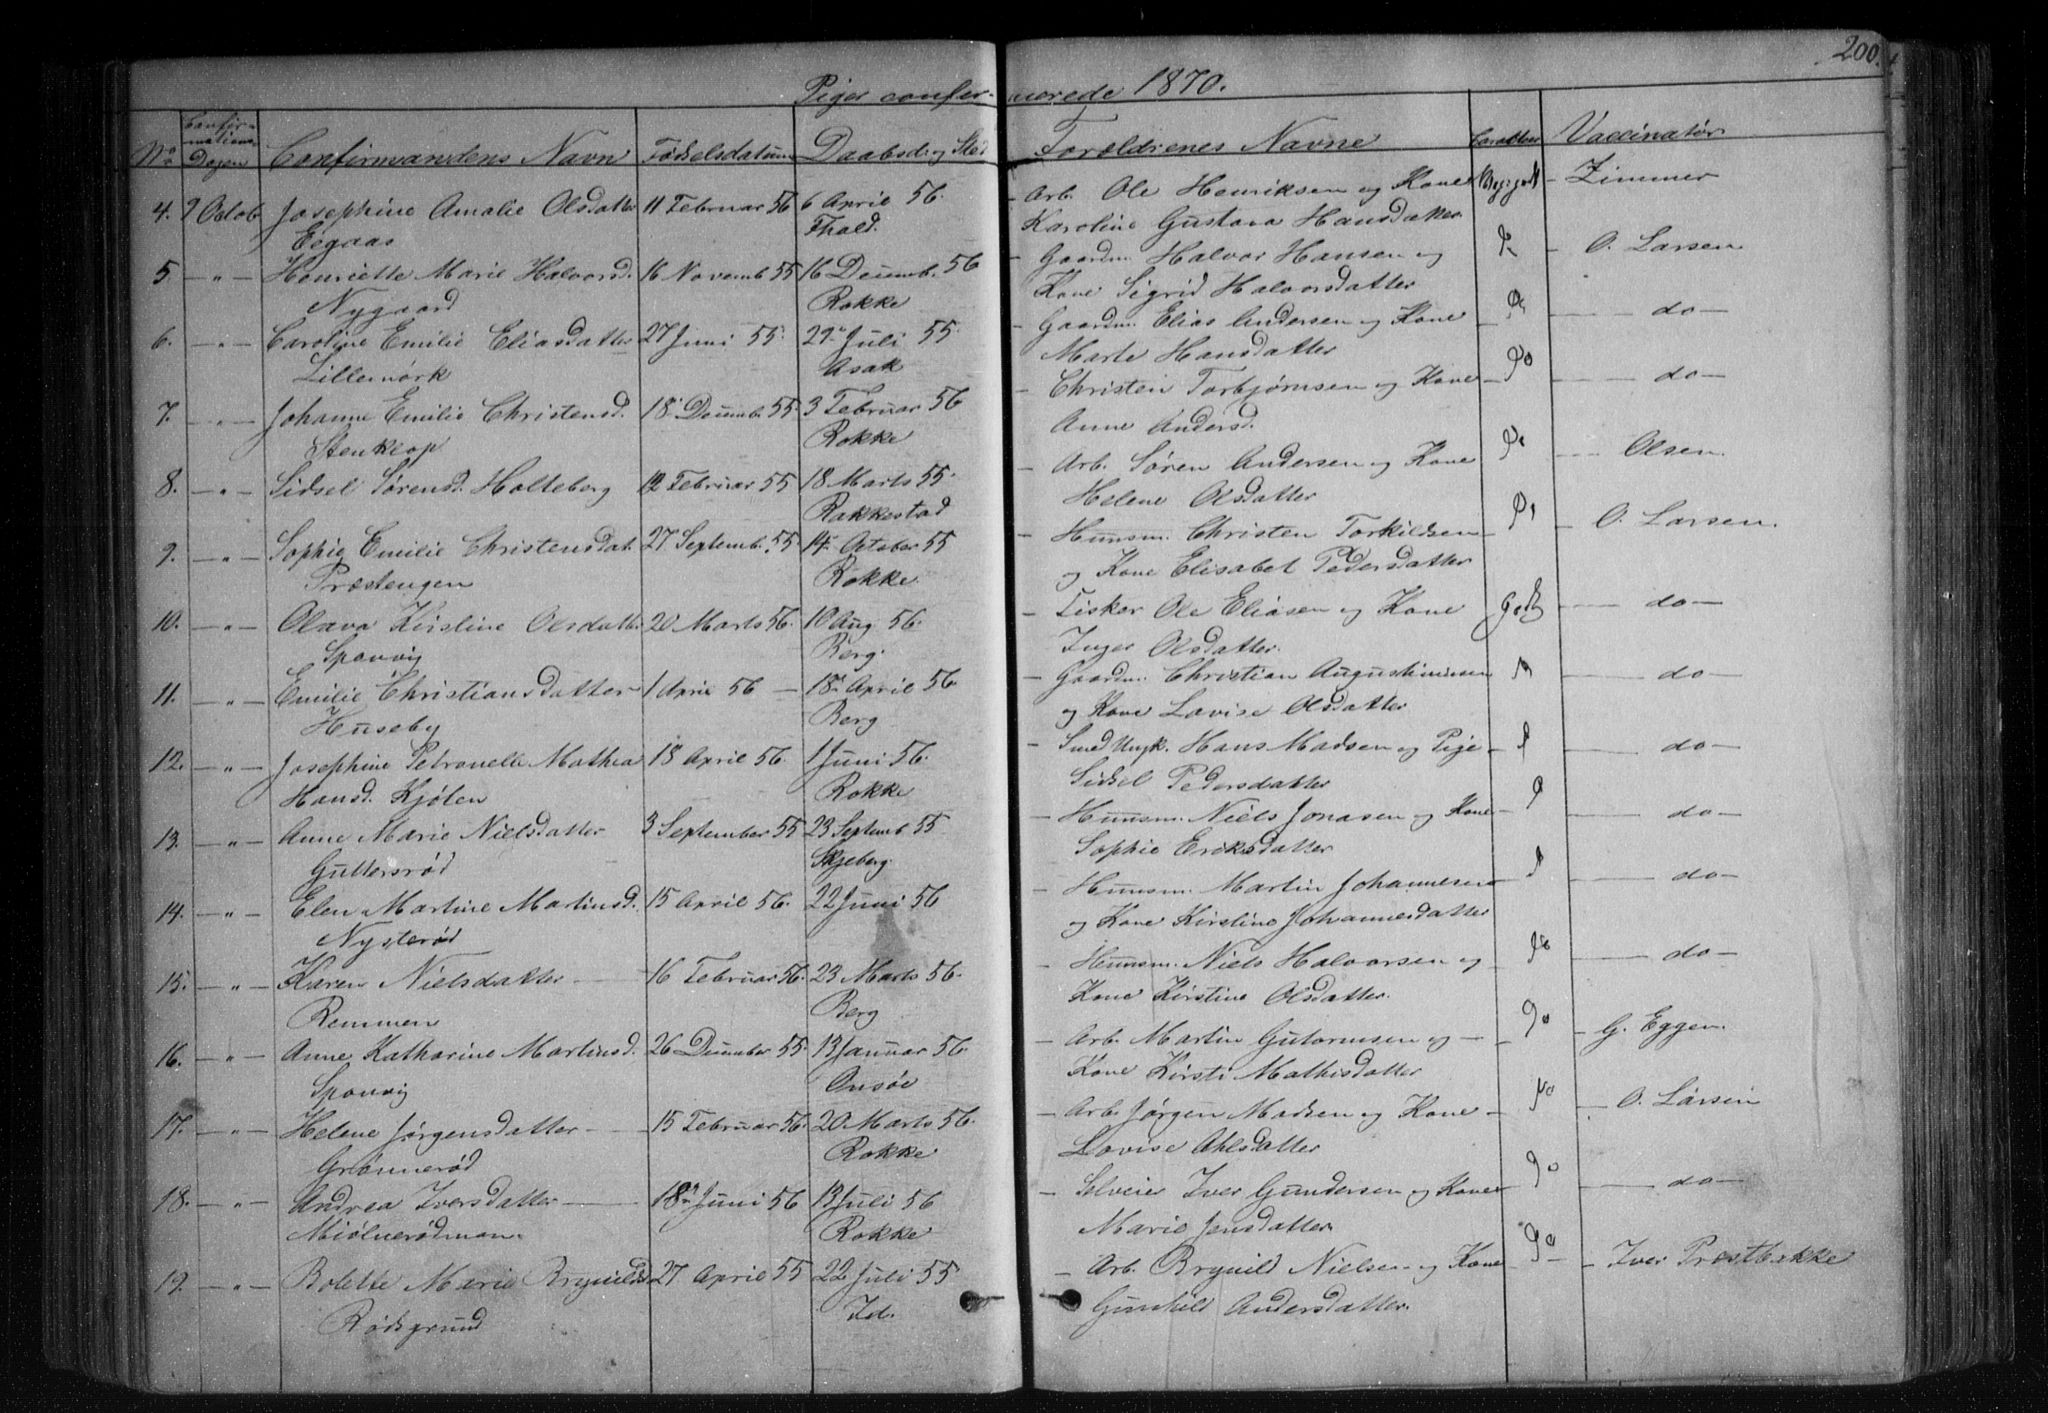 200.
Piger confirmerede 1870.
No Confirmations Dagen Confirmandens Navn Fødselsdatum Daabsd. og Sted Forældrenes Navne Caracteer Vaccinatør
4. 2 Octob Josephine Amalie Olsdatter 11 Februar 56 6 April 56. Arb. Ole Henriksen og Kone Meg. godt Zimmer
Eegaas Fhald. Karoline Gustava Hansdatter
5. — " — Henriette Marie Halvorsd. 16 Novemb 55 16 Decemb. 56 Gaardm. Halvor Hansen og O. Larsen
Nygaard Rokke Kone Sigrid Halvorsdatter
6. — " — Caroline Emilie Eliasdatter 27 Juni 55 29 Juli 55 Gaardm. Elias Andersen og Kone do
Lillemørk Asak Marte Hansdatter
7. — " — Johanne Emilie Christensd. 18 Decemb. 55 3 Februar 56 Christen Torbjørnsen og Kone do
Stenklop Rokke Anne Andersd.
8. — " — Sidsel Sørensd. Holteberg 12 Februar 55 18 Marts 55 Arb. Søren Andersen og Kone Olsen.
Rakkestad Helene Olsdatter
9. — " — Sophie Emilie Christensdat. 27 Septemb. 55 14 October 55 Huusm. Christen Torkildsen O. Larsen.
Præstengen Rokke og Kone Elisabet Pedersdatter
10. — " — Olava Kirstine Olsdatt. 20 Marts 56. 10 Aug 56. Fisker Ole Eliasen og Kone do
Sponvig Berg. Inger Olsdatter.
11. — " — Emilie Christiansdatter 1 April 56 18 April 56. Gaardm. Christian Augustinusen do
Huseby Berg og Kone Lovise Olsdatter
12. — " — Josephine Petronelle Mathea 18 April 56. 1 Juni 56. Smed Ungk. Hans Madsen og Pige do
Hansd. Kjølen Rokke Sidsel Pedersdatter
13. — " — Anne Marie Nielsdatter 3 September 55 23 Septemb 55 Huusm. Niels Jonasen og Kone do
Guttersrød Skjeberg. Sophie Eriksdatter
14. — " — Elen Martine Martinsd. 15 April 56. 22 Juni 56 Huusm. Martin Johannesen do
Nysterød og Kone Kirstine Johannesdatter
15. — " — Karen Nielsdatter 16 Februar 56. 23 Marts 56. Huusm. Niels Halvorsen og do
Remmen Berg Kone Kirstine Olsdatter.
16. — " — Anne Katharine Martinsd. 26 December 55. 13 Januar 56. Arb. Martin Gutormsen og G. Eggen.
Sponvig Onsøe Kone Kirsti Mathisdatter
17. — " — Helene Jørgensdatter 15 Februar 56. 20 Marts 56. Arb. Jørgen Madsen og Kone O. Larsen
Grønnerød Rokke Lovise Ahlsdatter
18. — " — Andrea Iversdatter 18 Juni 56 13 Juli 56 Selveier Iver Gundersen og Kone do
Miølnerødmon. Rokke Marie Jensdatter
19. — " — Bolette Marie Brynildsd 27 April 55 22 Juli 55 Arb. Brynild Nielsen og Kone Iver Prestbakke
Rødsgrund Id. Gunhild Andersdatter.